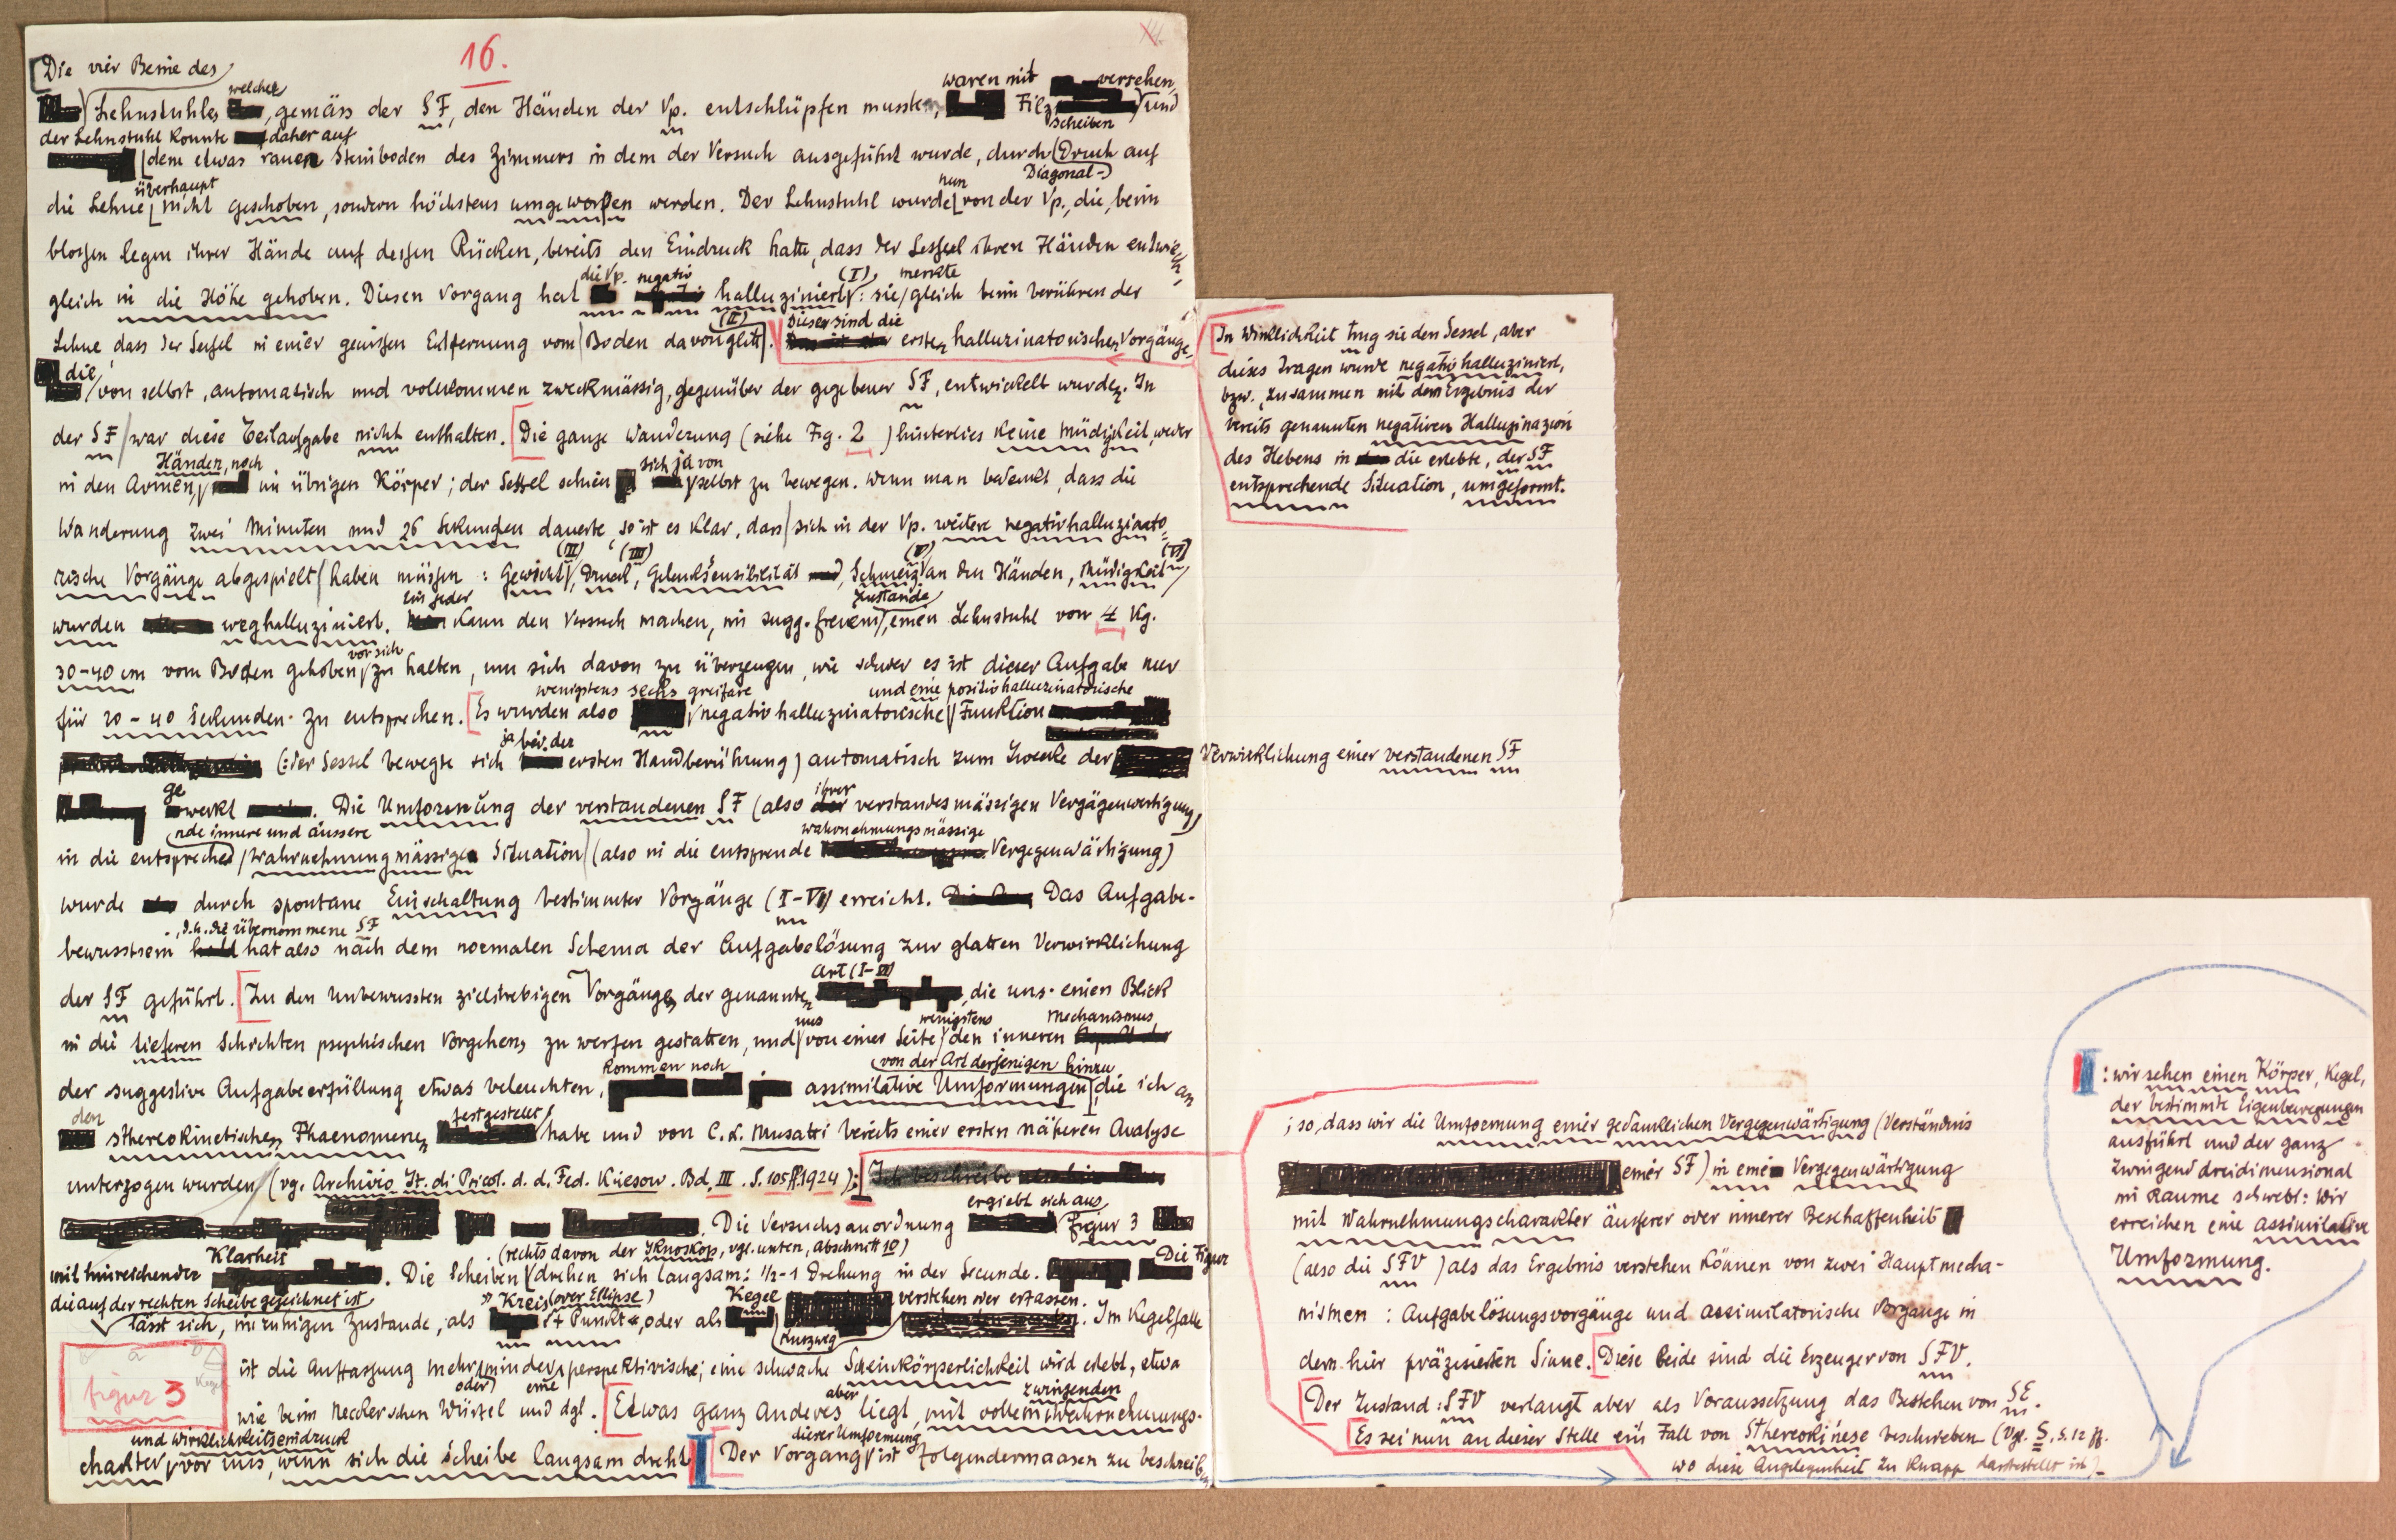 16.
Die vier Beine des
welcher waren mit versehen,
Lehnstuhles, gemäss der SF, den Händen der Vp. entschlüpfen musste, Filz und
der Lehnstuhl konnte daher auf scheiben
dem etwas rauen Steinboden des Zimmers in dem der Versuch ausgeführt wurde, durch Druck auf
überhaupt nun Diagonal-
die Lehne nicht geschoben, sondern höchstens umgeworfen werden. Der Lehnstuhl wurde von der Vp., die, beim
blossen Legen ihrer Hände auf dessen Rücken, bereits den Eindruck hatte, dass der Sessel ihren Händen entwich,
die Vp. negativ (I) merkte
gleich in die Höhe gehoben. Diesen Vorgang hat halluziniert: sie gleich beim berühren der
(II) Dieses sind die
Lehne, dass der Sessel in einer gewissen Entfernung vom Boden davonglitt. ersten halluzinatorischen Vorgänge,
die
von selbst, automatisch und vollkommen zweckmässig, gegenüber der gegebenen SF, entwickelt wurden. In
der SF war diese Teilaufgabe nicht enthalten. Die ganze Wanderung (siehe Fig. 2 ) hinterlies keine Müdigkeit, weder
Händen, noch sich ja von
in den Armen, im übrigen Körper; der Sessel schien selbst zu bewegen. Wenn man bedenkt, dass die
Wanderung zwei Minuten und 26 Sekunden dauerte, so ist es klar, dass sich in der Vp. weitere negativ halluzinato-
(III) (IIII) (V) (VI)
rische Vorgänge abgespielt haben müssen: Gewicht, Druck, Gelenksensibilität, Schmerz an den Händen, Müdigkeit
ein jeder zustande
wurden weghalluziniert. kann den Versuch machen, im sugg. freiem, einen Lehnstuhl von 4 Kg.
vor sich
30-40 cm vom Boden gehoben zu halten, um sich davon zu überzeugen, wie schwer es ist dieser Aufgabe nur
wenigstens sechs greifare und eine positiv halluzinatorische
für 20-40 Sekunden zu entsprechen. Es wurden also negativ halluzinatorische Funktion
ja bei der
(:der Sessel bewegte sich ersten Handberührung) automatisch zum Zwecke der Verwirklichung einer verstandenen SF
ge ihrer
weckt. Die Umformung der verstandenen SF (also verstandesmässigen Vergägenwertigung)
nde innere und äussere wahrnehmungsmässige
in die entspreche wahrnehmungmässige Situation (also in die entsprende Vergegenwärtigung)
wurde durch spontane Einschaltung bestimmter Vorgänge (I-VI) erreicht. Das Aufgabe-
, d.h. die übernommene SF
bewusstsein hat also nach dem normalen Schema der Aufgabelösung zur glatten Verwirklichung
Art (I-VI)
der SF geführt. Zu den unbewussten zielstrebigen Vorgänge, der genannten, die uns einen Blick
uns wenigstens Mechanismus
in die tieferen Schichten psychischen Vorgehens zu werfen gestatten, und von einer Seite den inneren
kommen noch von der Art derjenigen hinzu
der suggestive Aufgabeerfüllung etwas beleuchten, assimilative Umformungen, die ich an
den festgestellt
sthereokinetischen Phaenomenen habe und von C. L. Musatti bereits einer ersten näheren Analyse
unterzogen wurden (vg. Archivio It. di Psicol. d. d. Fed. Kiesow. Bd. III. S. 105ff 1924):
ergiebt sich aus
Die Versuchsanordnung Figur 3
Klarheit (rechts davon der Iknoskop, vgl. unten, Abschnitt 10) Die Figur
mit hinreichender. Die Scheiben drehen sich langsam: 1/2-1 Drehung in der Secunde.
die auf der rechten Scheibe gezeichnet ist » Kreis (oder Ellipse) Kegel verstehen oder erfassen.
lässt sich, im ruhigen Zustande, als + Punkt«, oder als. Im Kegelfalle
ist die Auffassung mehr minder perspektivische; eine schwache Scheinkörperlichkeit wird erlebt, etwa
oder eine aber zwingenden
wie beim Neckerschen Würfel und dgl. Etwas ganz anderes liegt, mit vollem Wahrnehmungs-
und Wirklichkeitseindruck dieser Umformung
charkter vor uns, wenn sich die Scheibe langsam dreht Der Vorgang ist folgendermaasen zu beschreiben
figur 3
In Wirklichkeit trug sie den Sessel, aber
dieses Tragen wurde negativ halluziniert,
bzw. zusammen mit dem Ergebnis der
bereits genannten negativen Halluzinazion
des Hebens in die erlebte, der SF
entsprechende Situation, umgeformt.
; so, dass wir die Umformung einer gedanklichen Vergegenwärtigung (Verständnis
einer SF) in eine Vergegenwärtigung
mit Wahrnehmungscharakter äusserer oder innerer Beschaffenheit
(also die SFV) als das Ergebnis verstehen können von zwei Hauptmecha-
nismen: Aufgabelösungsvorgänge und assimilatorische Vorgänge in
dem hier präzisierten Sinne. Diese beide sind die Erzeuger von SFV.
Der Zustand: SFV verlangt aber als Voraussetzung das Bestehen von SE.
Es sei nun an dieser Stelle ein Fall von Sthereokinese beschrieben (Vgl. S. 12 ff.
wo diese Angelegenheit zu knapp dargestellt ist).
: wir sehen einen Körper, Kegel,
der bestimmte Eigenbewegungen
ausführt und der ganz
zwingend dreidimensional
im Raume schwebt: Wir
erreichen eine assimilative
Umformung.